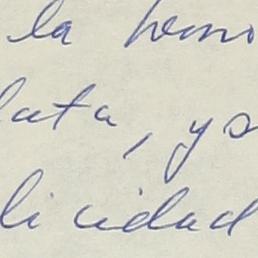 la hemo
lata, yo
licidad